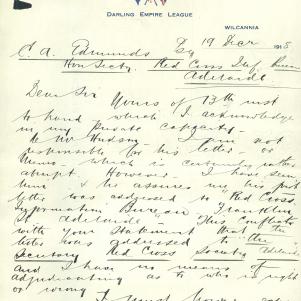 DARLING EMPIRE LEAGUE
WILCANNIA
19 Decr 1918
C. A. Edmunds Esq
Hon Secty. Red Cross Inf
Adelaide
Dear Sir
Yours of 13th inst
to hand which I acknowledge
in my private capacity.
Mr Hudson I am not
responsible for his letter or
which is certainly rather
abrupt. However I have seen
him & he assures me his first
letter was addressed to "Red Cross
Information Bureau Franklin
St Adelaide" This conflicts
with your statement that the
letter was addressed to "the
Secretary Red Cross Society Adelaide
and I have no means of
adjudicating as to who is right
or wrong
I must however